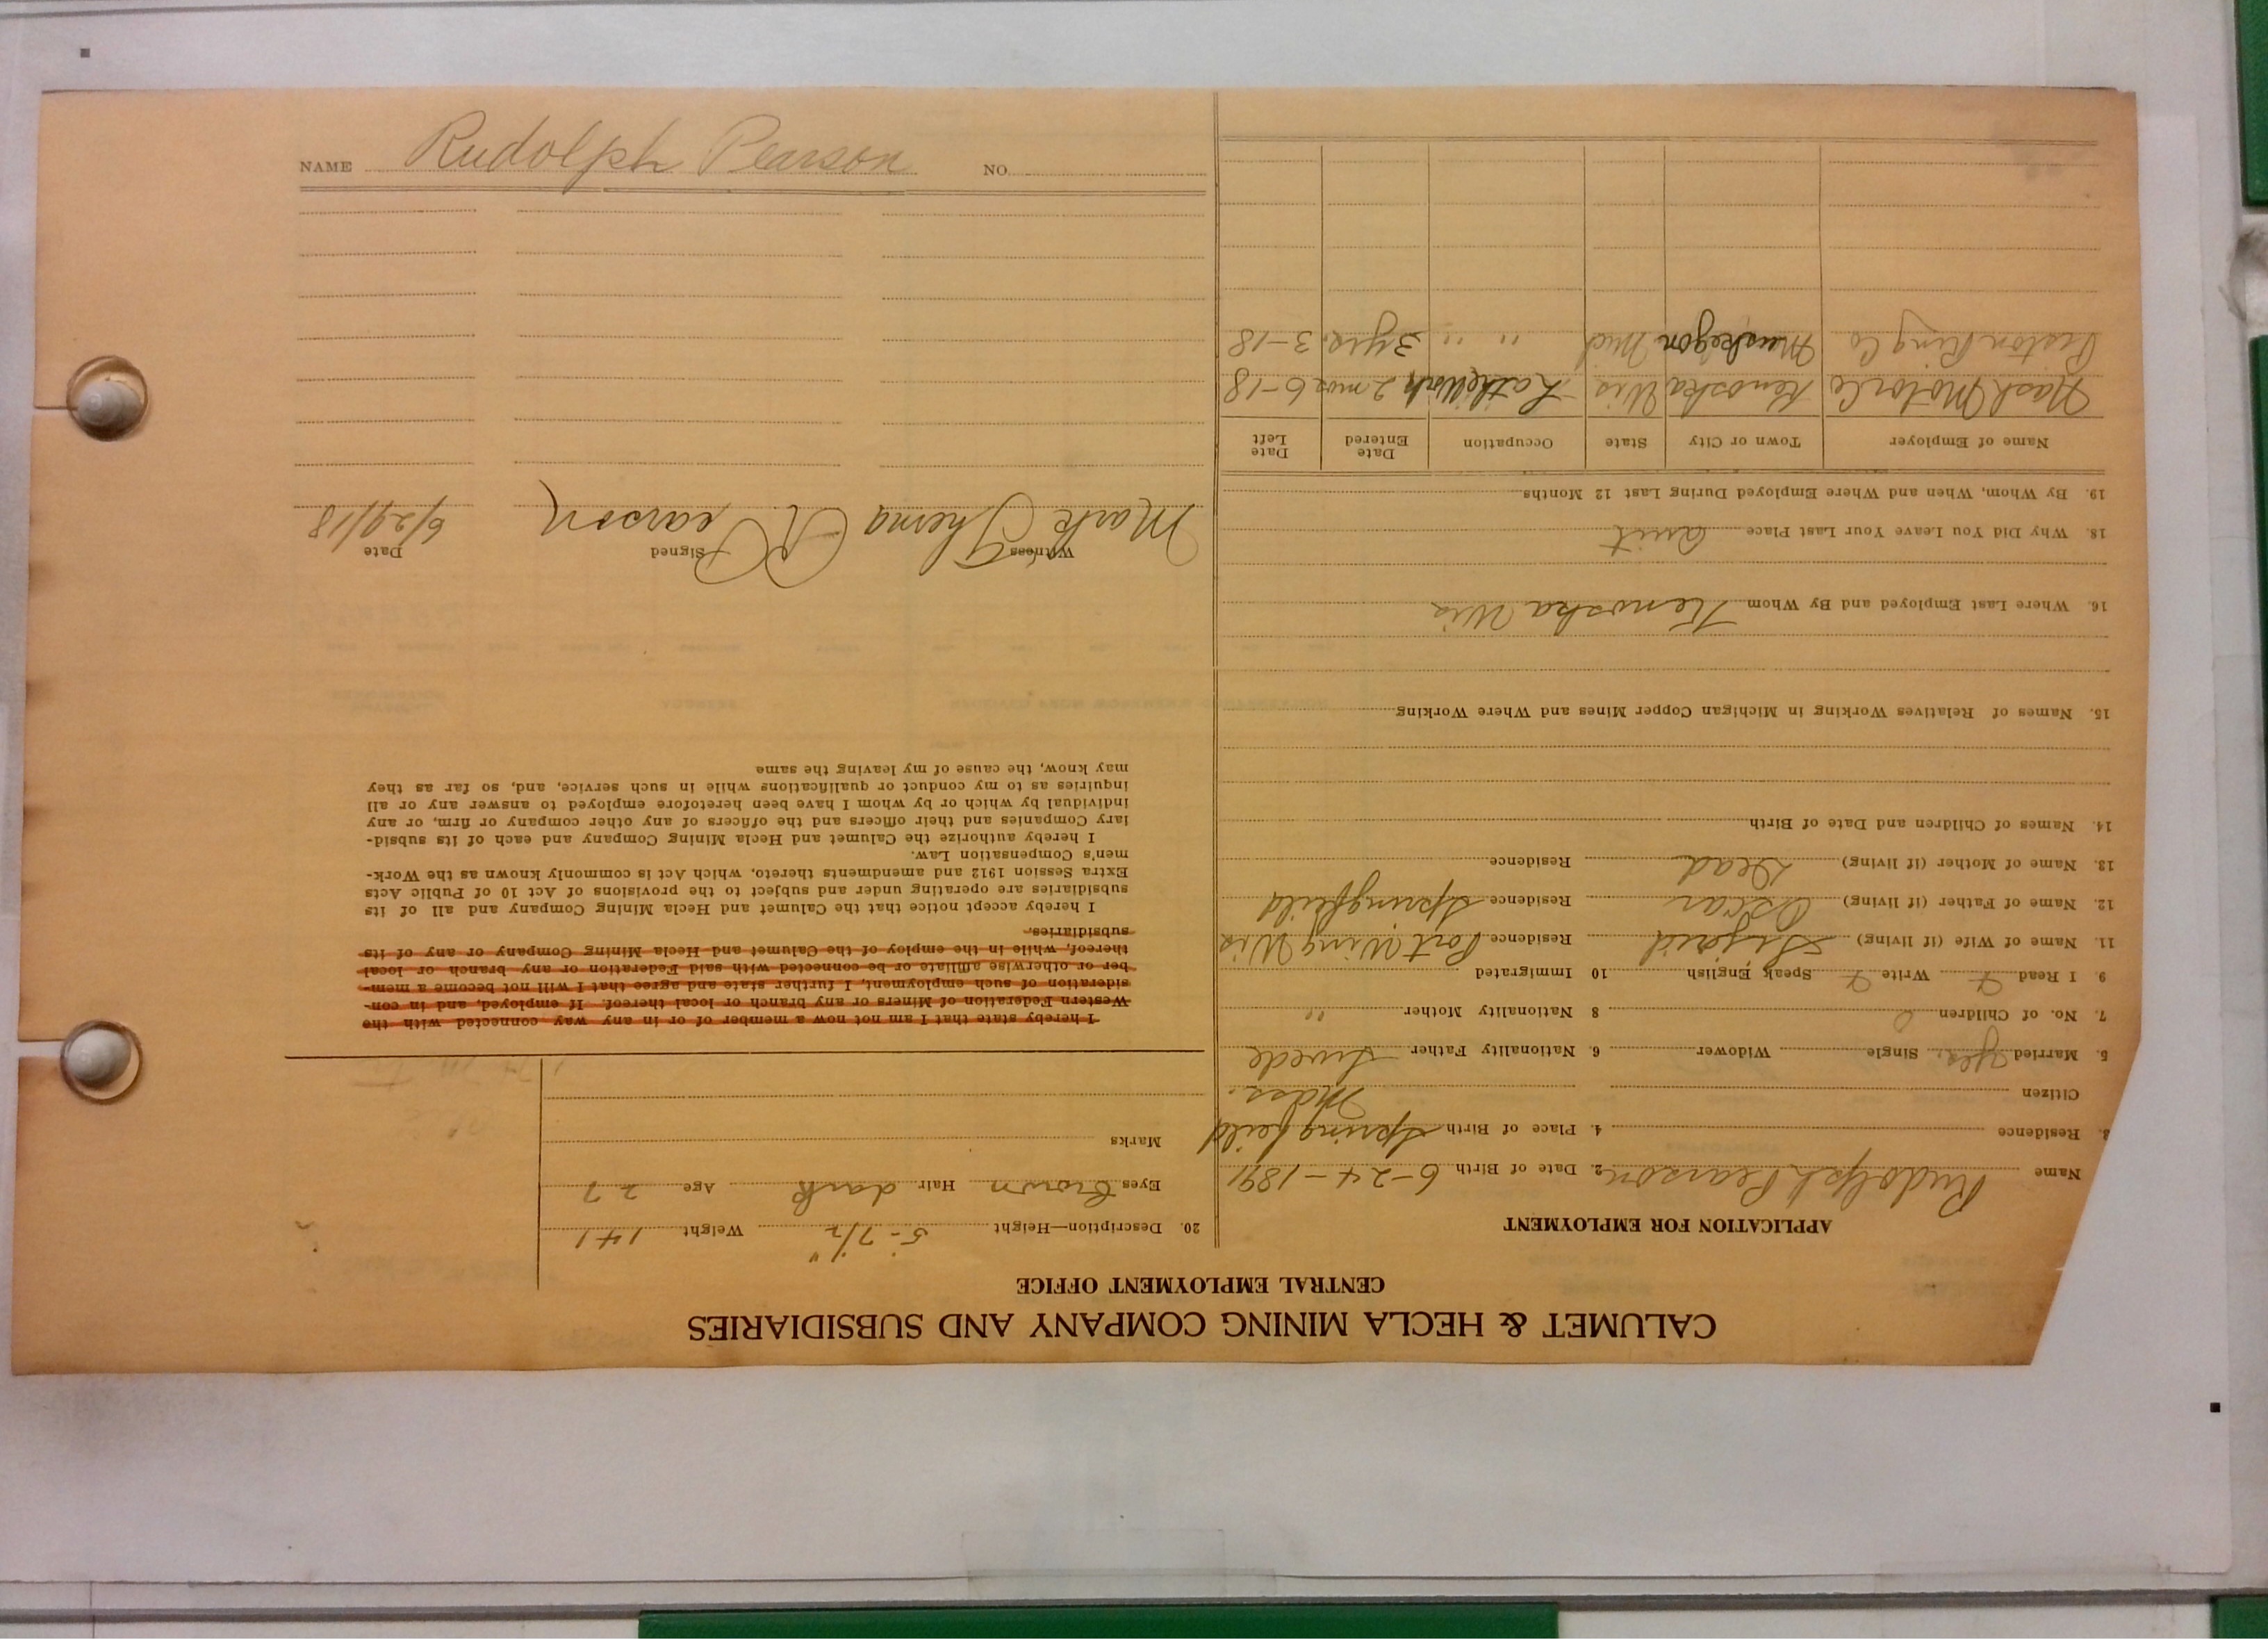 CALUMET & HECLA MINING COMPANY AND SUBSIDIARIES
CENTRAL EMPLOYMENT OFFICE
APPLICATION FOR EMPLOYMENT
Name Rudolph Pearson 2. Date of Birth 6-24-1891
3. Residence 4. Place of Birth Springfeild
Citizen Mass.
5. Married yes. Single Widower 6. Nationality Father Swede
7. No. of Children 0 8 Nationality Mother "
9. I Read Write Speak English 10 Immigrated
11. Name of Wife (if living) Residence Port Wing Wis
12. Name of Father (if living) Oscar Residence Springfeild
13. Name of Mother (if living) Dead Residence
14. Names of Children and Date of Birth
15. Names of Relatives Working in Michigan Copper Mines and Where Working
16. Where Last Employed and By Whom Kenoska Wis
18. Why Did You Leave Your Last Place Quit
19. By Whom, When and Where Employed During Last 12 Months
Name of Employer Town or City State Occupation Date Entered Date Left
Nash Motor Co Kenoska Wis Lathe Work 2 mos 6-18
Piston Ring Co Muskegon Mich " " 3 yrs. 3-18
20. Description—Height 5-7 1/2" Weight 141
Eyes Brown Hair dark Age 27
Marks
I hereby state that I am not now a member of or in any way connected with the
Western Federation of Miners or any branch or local thereof. If employed, and in con-
sideration of such employment, I further state and agree that I will not become a mem-
ber or otherwise affiliate or be connected with said Federation or any branch or local
thereof, while in the employ of the Calumet and Hecla Mining Company or any of its
subsidiaries.
I hereby accept notice that the Calumet and Hecla Mining Company and all of its
subsidiaries are operating under and subject to the provisions of Act 10 of Public Acts
Extra Session 1912 and amendments thereto, which Act is commonly known as the Work-
men's Compensation Law.
I hereby authorize the Calumet and Hecla Mining Company and each of its subsid-
iary Companies and their officers and the officers of any other company or firm, or any
individual by which or by whom I have been heretofore employed to answer any or all
inquiries as to my conduct or qualifications while in such service, and, so far as they
may know, the cause of my leaving the same
Witness Signed Date
Mark R Pearson 6/29/18
NAME Rudolph Pearson NO.